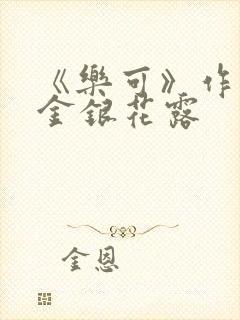 《樂可》作
金銀花露
金恩